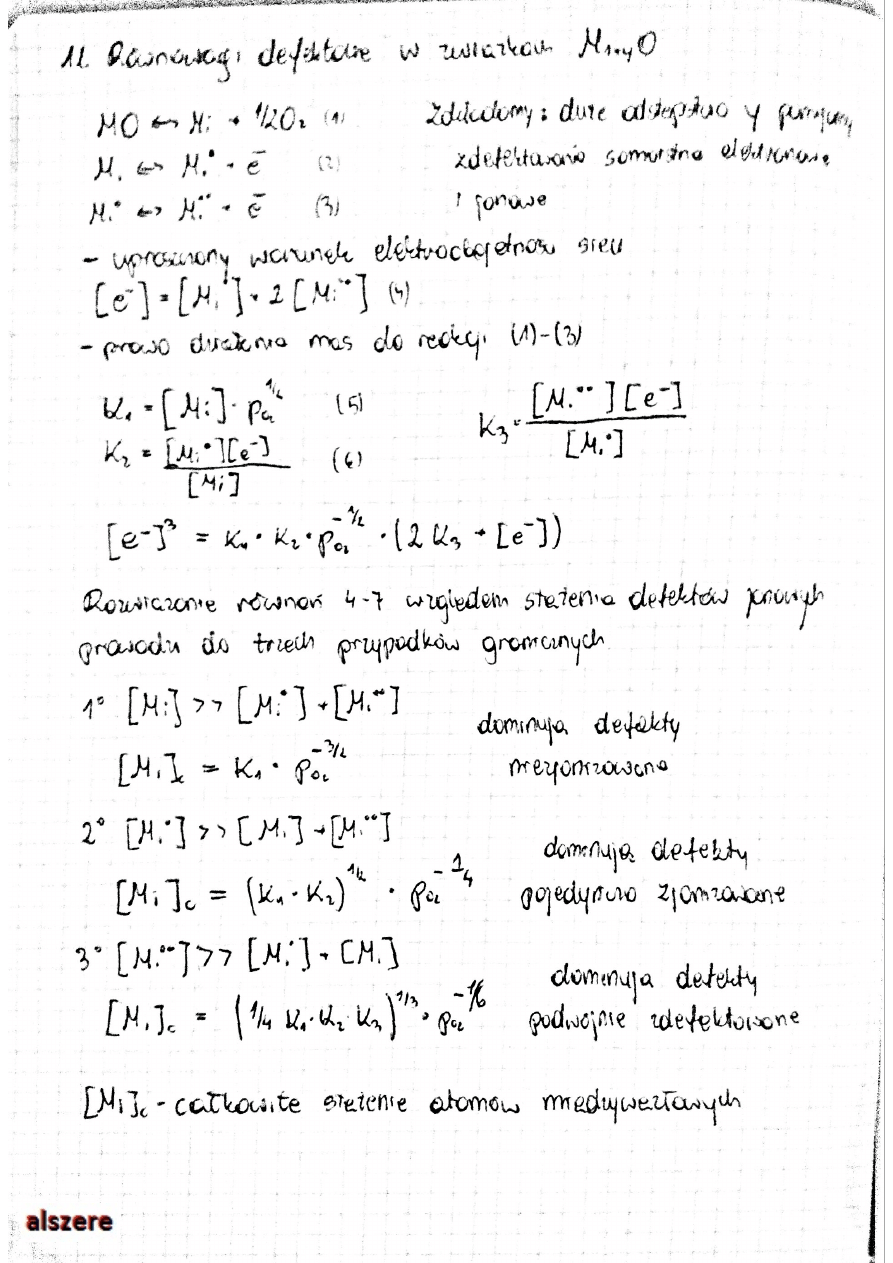 11. Równowagi defektowe w związkach M₁₊yO
MO ↔ Mi + 1/2O₂ (1)
Zakładamy: duże odstępstwo y pomijamy
Mi ↔ Mi• + e⁻ (2)
zdefektowanie samoistne elektronowe
Mi• ↔ Mi•• + e⁻ (3)
i jonowe
- uproszczony warunek elektroobojętności sieci
[e⁻] = [Mi•] + 2 [Mi••] (4)
- prawo działania mas do reakcji (1)-(3)
K₁ = [Mi] · pO₂^1/2 (5)
K₃ = [Mi••][e⁻] / [Mi•]
K₂ = [Mi•][e⁻] / [Mi] (6)
[e⁻]³ = K₁ · K₂ · pO₂^-1/2 · (2 K₃ + [e⁻])
Rozwiązanie równań 4-7 względem stężenia defektów jonowych
prowadzi do trzech przypadków granicznych
1° [Mi] >> [Mi•] + [Mi••]
dominują defekty
[Mi]c = K₁ · pO₂^-3/2
niezjonizowane
2° [Mi•] >> [Mi] + [Mi••]
dominują defekty
[Mi]c = (K₁ · K₂)^1/2 · pO₂^-1/4
pojedynczo zjonizowane
3° [Mi••] >> [Mi•] + [Mi]
dominują defekty
[Mi]c = (1/4 K₁ · K₂ K₃)^1/3 · pO₂^-1/6
podwójnie zdefektowane
[Mi]c - całkowite stężenie atomów międzywęzłowych
alszere